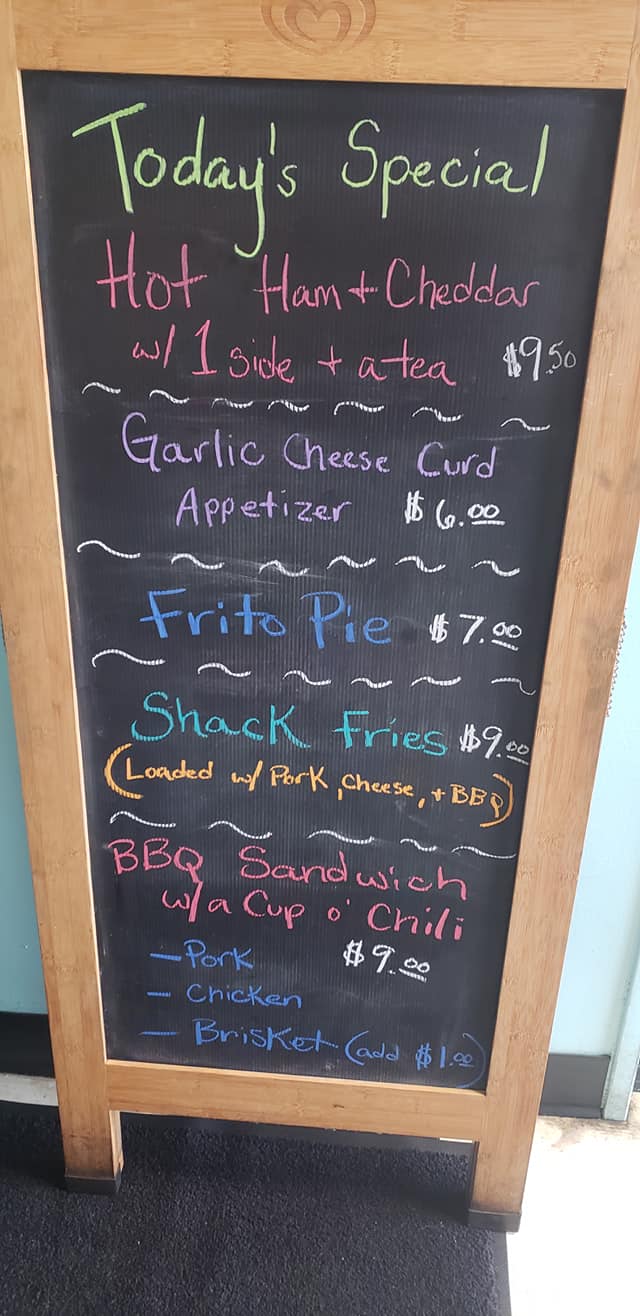 Today's Special
Hot Ham + Cheddar
w/ 1 side + a tea $9.50
Garlic Cheese Curd
Appetizer $6.00
Frito Pie $7.00
Shack Fries $9.00
(Loaded w/ Pork, Cheese, + BBQ)
BBQ Sandwich
w/a Cup o' Chili
- Pork $9.00
- Chicken
- Brisket (add $1.00)